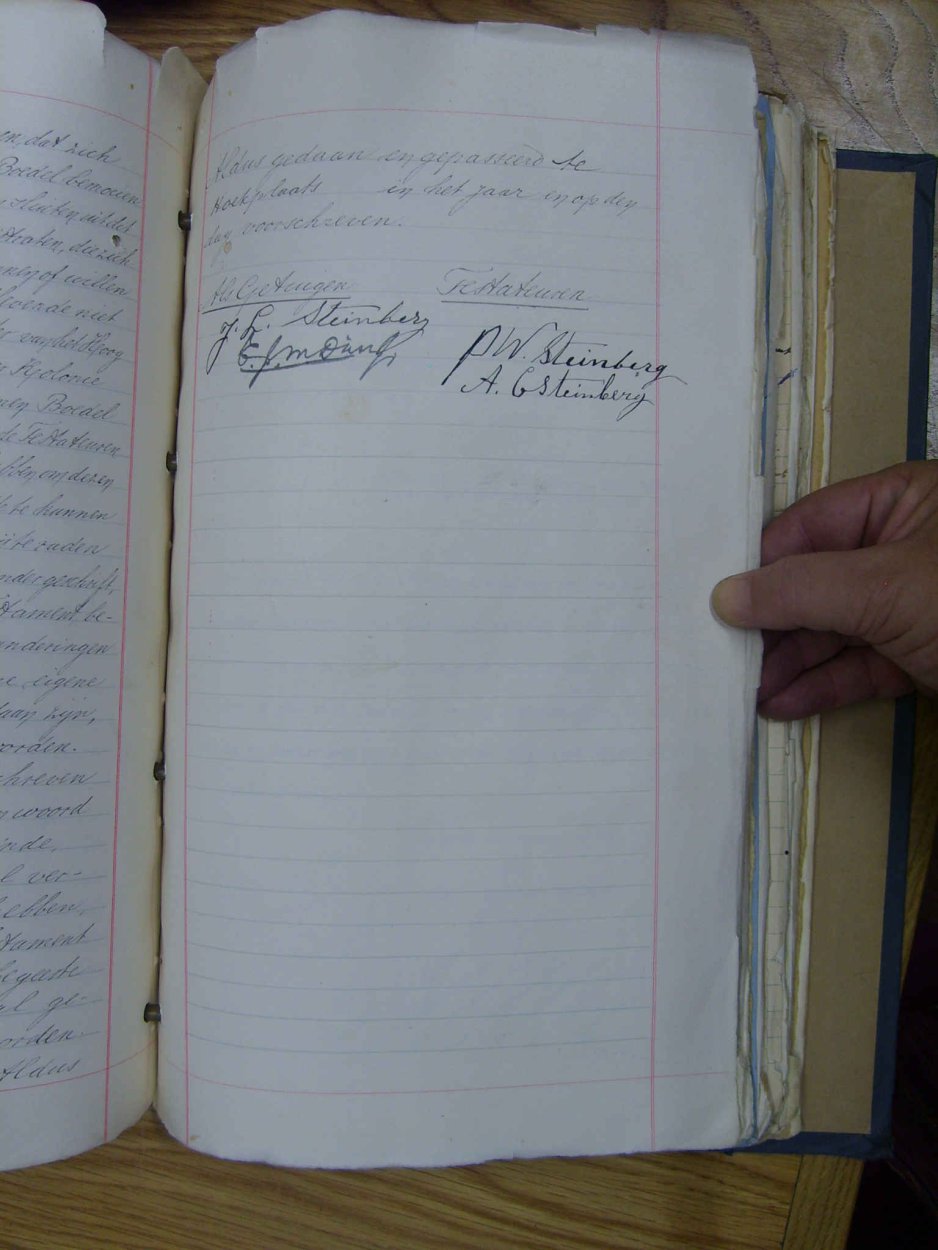 en, dat zich
Boedel bemoeien
uit het
straten, die zich
of willen
niet
van het Hoog
Kolonie
Boedel
de Testateuren
hebben om dezen
te kunnen
te raden
onder geschrift,
tament be-
anderingen
eigene
daan zijn,
worden.
schreven
woord
inde,
l ver-
hebben,
tament
begeerte
al ge-
worden
Aldus
Aldus gedaan en gepasseerd te
Hoekplaats in het jaar en op den
dag voorschreven.
Als Getuigen
J. L. Steinberg
Testateuren
P W. Steinberg
A. C Steinberg